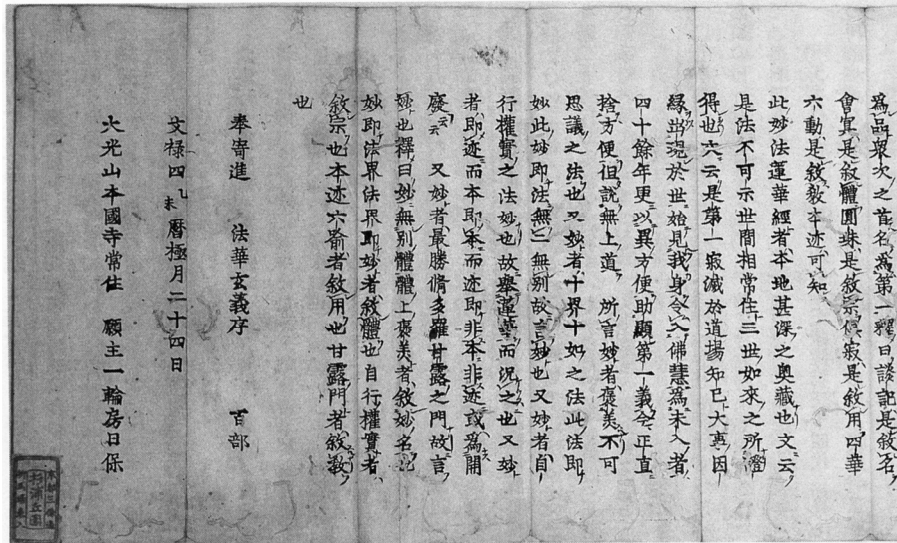 爲品衆次之首名爲第一釋曰談記是敘名
會冥是敘體圓珠是敘宗俱寂是敘用四華
六動是敘教本迹可知
此妙法蓮華經者本地甚深之奥藏也文云
是法不可示世間相常住三世如來之所證
得也六云是第一寂滅於道場知已大事因
緣出現於世始見我身令入佛慧爲未入者
四十餘年更以異方便助顯第一義今正直
捨方便但說無上道　所言妙者褒美不可
思議之法也又妙者十界十如之法此法即
妙此妙即法無二無別故言妙也又妙者自
行權實之法妙也故擧蓮華而況之也又妙
者即迹而本即本而迹即非本非迹或爲開
廢云云　又妙者最勝脩多羅甘露之門故言
妙也釋曰妙無別體體上褒美者敘妙名也
妙即法界法界即妙者敘體也自行權實者
敘宗也本迹六喻者敘用也甘露門者敘教
也
奉寄進　法華玄義序　百部
文禄四乙未曆極月二十四日
大光山本國寺常住　願主一輪房日保